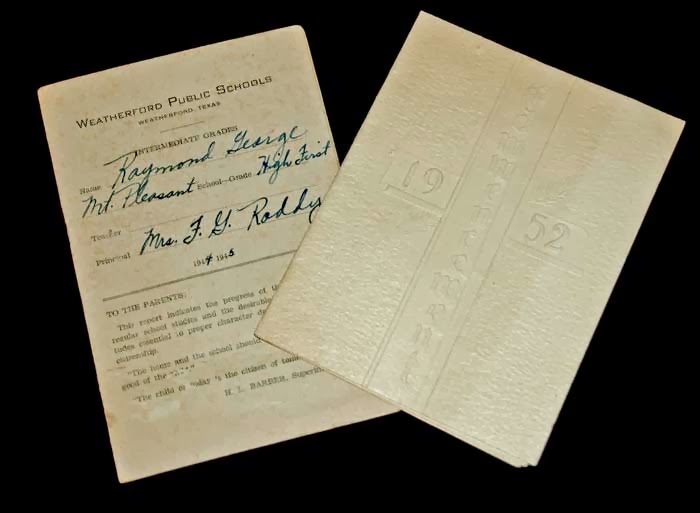 WEATHERFORD PUBLIC SCHOOLS
WEATHERFORD, TEXAS
INTERMEDIATE GRADES
Name Raymond George
Mt. Pleasant School—Grade High First
Teacher
Principal Mrs. F. G. Roddy
1944 1945
TO THE PARENTS:
This report indicates the progress of
regular school studies and the desirable
tudes essential to proper character
citizenship.
"The home and the school should
good of the
"The child of today is the citizen of
H. L. BARBER,
Commencement
19
52